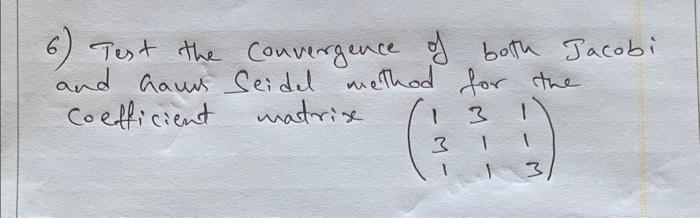 6) Test the Convergence of both Jacobi
and Gauss Seidel method for the
Coefficient matrix (1 3 1
3 1 1
1 1 3)